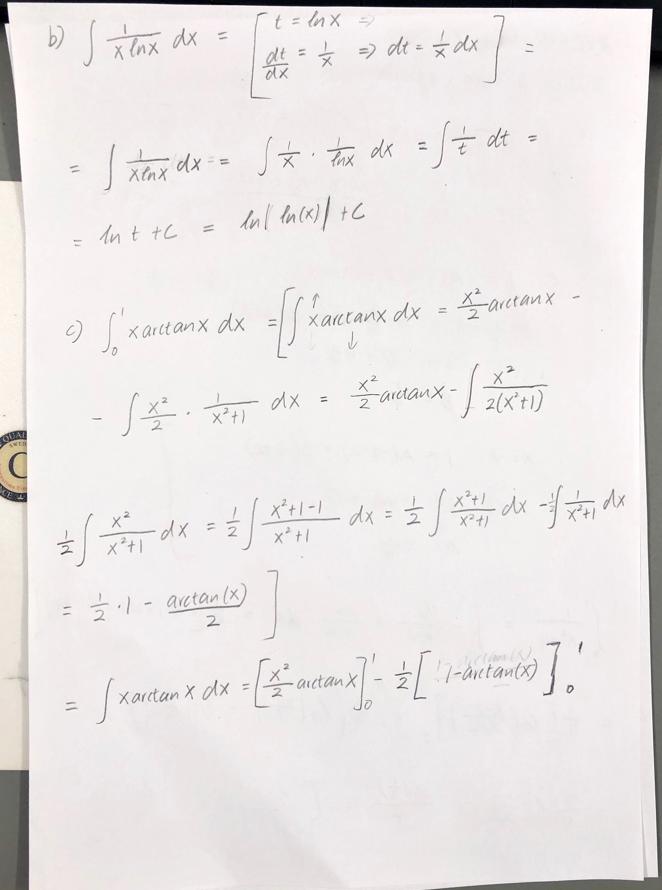 b) ∫ 1/(x lnx) dx = [ t = lnx ⇒
dt/dx = 1/x ⇒ dt = 1/x dx ] =
= ∫ 1/(x lnx) dx = ∫ 1/x · 1/lnx dx = ∫ 1/t dt =
= ln t + C = ln| ln(x) | + C
c) ∫₀¹ x arctanx dx = [ ∫ x↑ arctanx↓ dx = x²/2 arctanx -
- ∫ x²/2 · 1/(x²+1) dx = x²/2 arctanx - ∫ x²/(2(x²+1))
1/2 ∫ x²/(x²+1) dx = 1/2 ∫ (x²+1-1)/(x²+1) dx = 1/2 ∫ (x²+1)/(x²+1) dx - 1/2 ∫ 1/(x²+1) dx
= 1/2 · 1 - arctan(x)/2 ]
= ∫ x arctan x dx = [ x²/2 arctanx ]₀¹ - 1/2 [ 1-arctan(x) ]₀¹